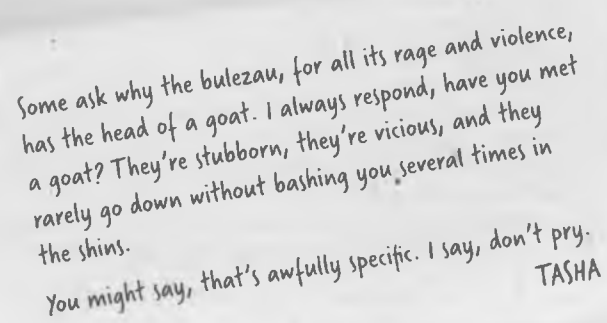 Some ask why the bulezau, for all its rage and violence,
has the head of a goat. I always respond, have you met
a goat? They're stubborn, they're vicious, and they
rarely go down without bashing you several times in
the shins.
You might say, that's awfully specific. I say, don't pry.
TASHA